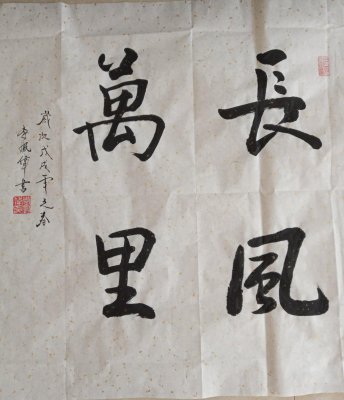 長風
萬里
歲次戊戌年之春
李風偉書